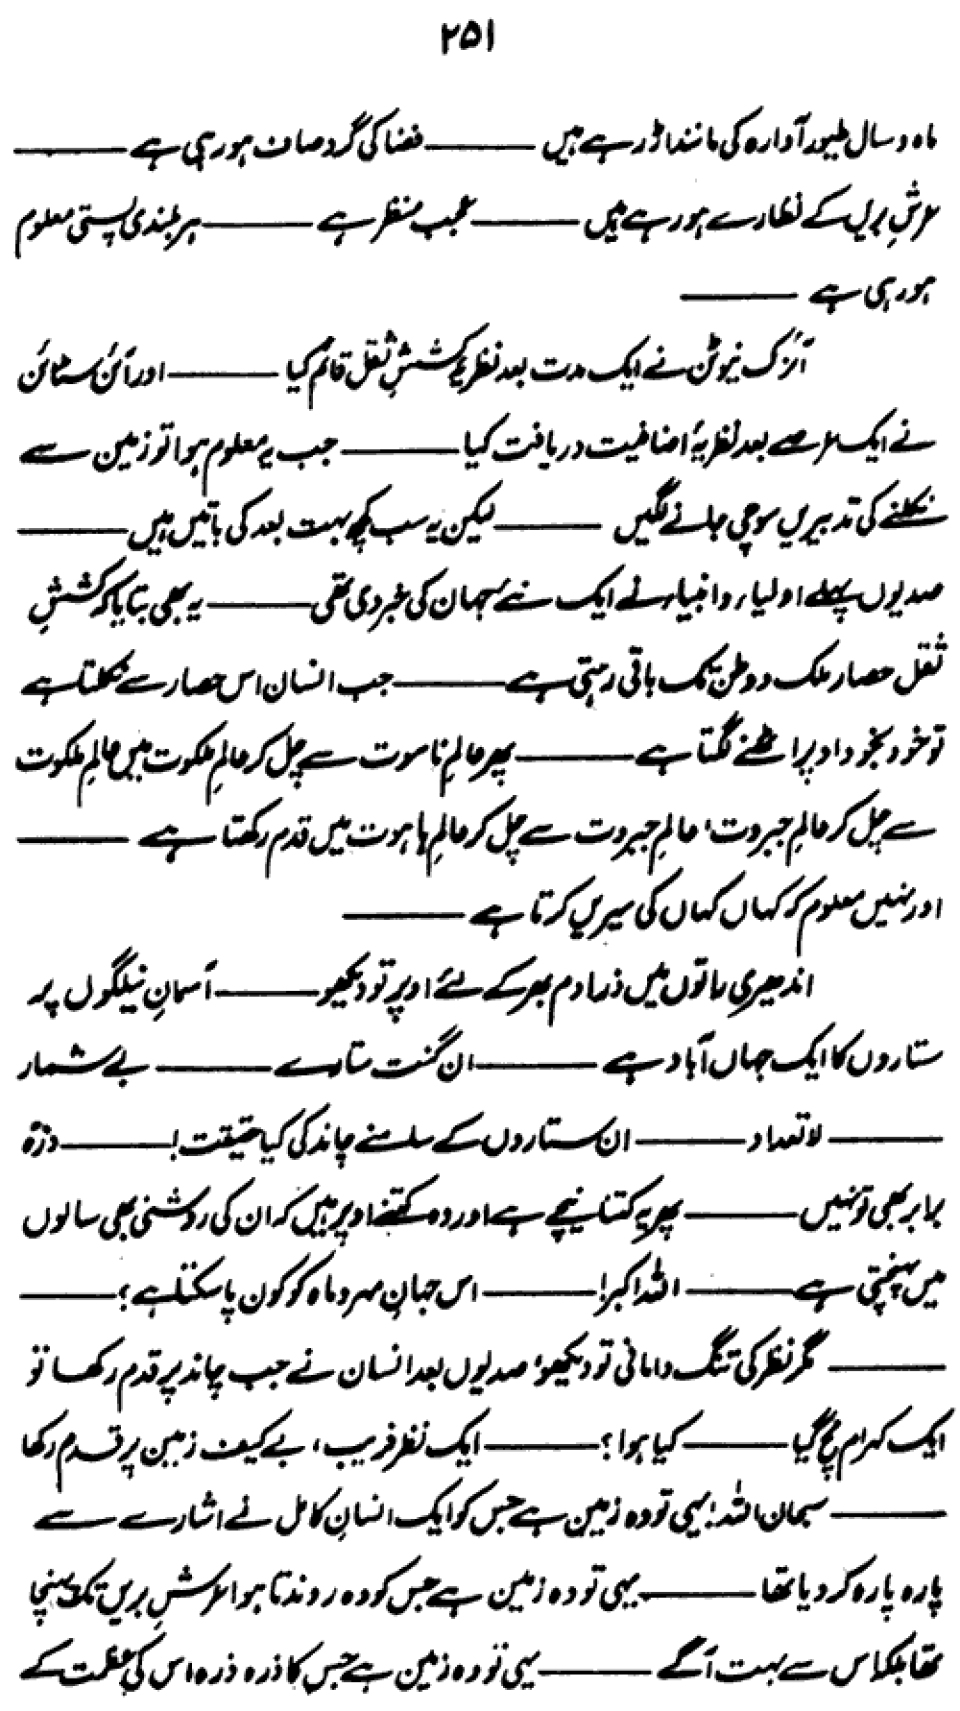 ۲۵۱
ماہ و سال طیور آوارہ کی مانند اڑ رہے ہیں ——— فضا کی گرد صاف ہو رہی ہے ———
عرشِ بریں کے نظارے ہو رہے ہیں ——— عجب منظر ہے ——— ہر بلندی پستی معلوم
ہو رہی ہے ———
آئزک نیوٹن نے ایک مدت بعد نظریۂ کششِ ثقل قائم کیا ——— اور آئن سٹائن
نے ایک عرصے بعد نظریۂ اضافیت دریافت کیا ——— جب یہ معلوم ہوا تو زمین سے
نکلنے کی تدبیریں سوچی جانے لگیں ——— لیکن یہ سب کچھ بہت بعد کی باتیں ہیں ———
صدیوں پہلے اولیاء و انبیاء نے ایک نئے جہان کی خبر دی تھی ——— یہ بھی بتایا کہ کششِ
ثقل حصار ملک و وطن تک باقی رہتی ہے ——— جب انسان اس حصار سے نکلتا ہے
تو خود بخود اوپر اٹھنے لگتا ہے ——— پھر عالمِ ناسوت سے چل کر عالمِ ملکوت میں عالمِ ملکوت
سے چل کر عالمِ جبروت، عالمِ جبروت سے چل کر عالمِ ہاہوت میں قدم رکھتا ہے ———
اور نہیں معلوم کہ کہاں کہاں کی سیریں کرتا ہے ———
اندھیری راتوں میں ذرا دم بھر کے لئے اوپر تو دیکھو ——— آسمانِ نیلگوں پر
ستاروں کا ایک جہاں آباد ہے ——— ان گنت ستارے ——— بے شمار
——— لاتعداد ——— ان ستاروں کے سامنے چاند کی کیا حقیقت! ——— ذرّہ
برابر بھی تو نہیں ——— پھر یہ کتنا نیچے ہے اور وہ کتنے اوپر ہیں کہ ان کی روشنی بھی سالوں
میں پہنچتی ہے ——— اللہ اکبر! ——— اس جہانِ مہر و ماہ کو کون پا سکتا ہے؟ ———
——— مگر نظر کی تنگ دامانی تو دیکھو، صدیوں بعد انسان نے جب چاند پر قدم رکھا تو
ایک کہرام مچ گیا ——— کیا ہوا؟ ——— ایک نظر فریب، بے کیف زمین پر قدم رکھا
——— سبحان اللہ! یہی تو وہ زمین ہے جس کو ایک انسانِ کامل نے اشارے سے
پارہ پارہ کر دیا تھا ——— یہی تو وہ زمین ہے جس کو وہ روندتا ہوا عرشِ بریں تک پہنچا
تھا بلکہ اس سے بہت آگے ——— یہی تو وہ زمین ہے جس کا ذرہ ذرہ اس کی عظمت کے